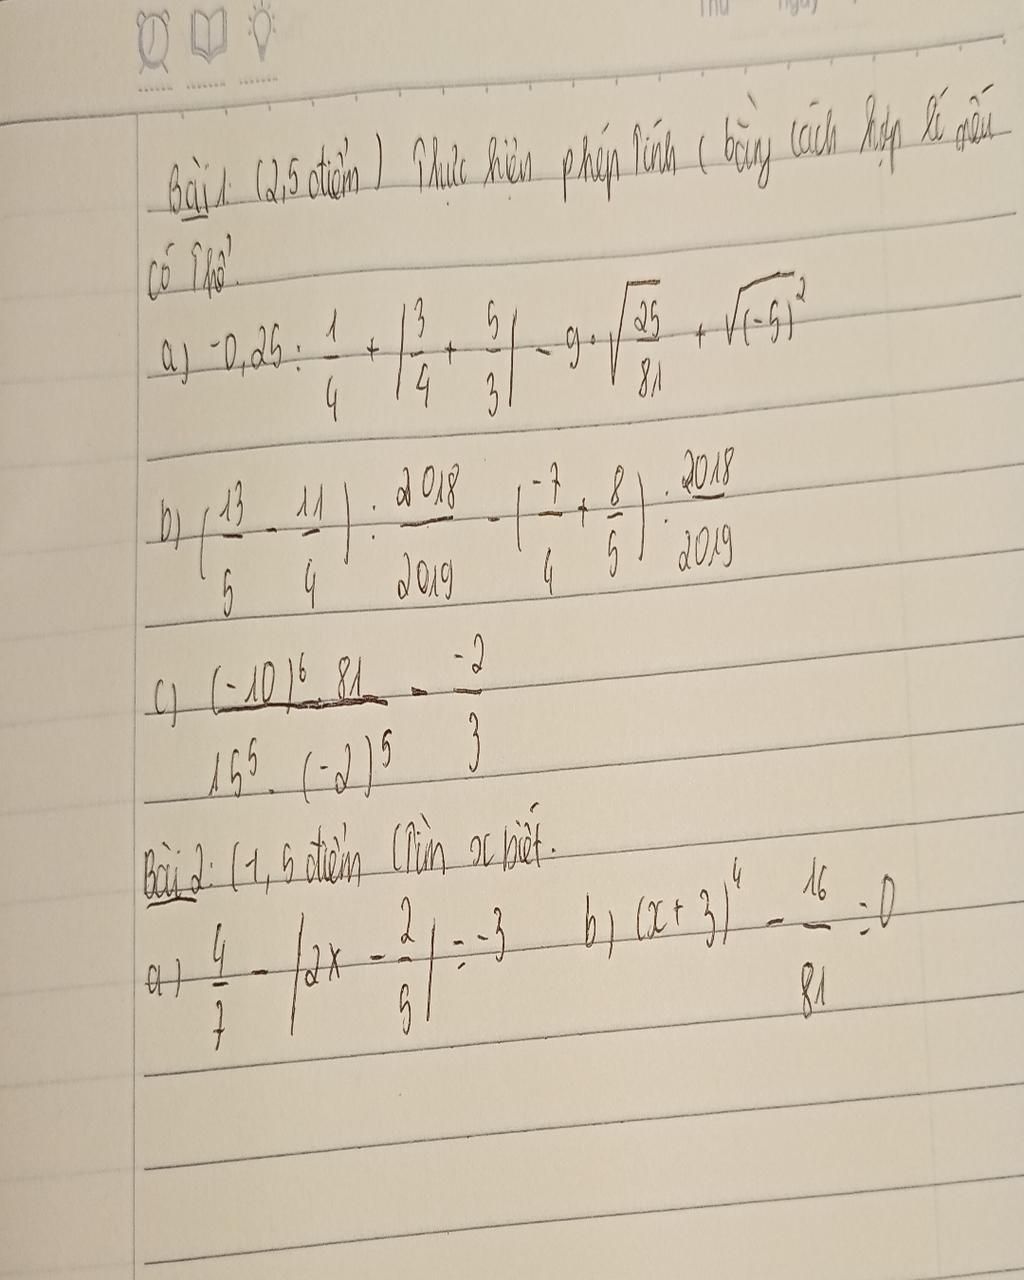 Thứ ngày
Bài 1: (2,5 điểm) Thực hiện phép tính (bằng cách hợp lí nếu
có thể.
a) -0,25 : 1/4 + |3/4 + 5/3| - 9 . √(25/81) + √(-5)²
b) (13/5 - 11/4) : 2018/2019 - (-7/4 + 8/5) : 2018/2019
c) (-10)⁶ . 81 / 15⁵ . (-2)⁵ - -2/3
Bài 2: (1,5 điểm (Tìm x biết.
a) 4/7 - |2x - 2/5| = -3 b) (x + 3)⁴ - 16/81 = 0